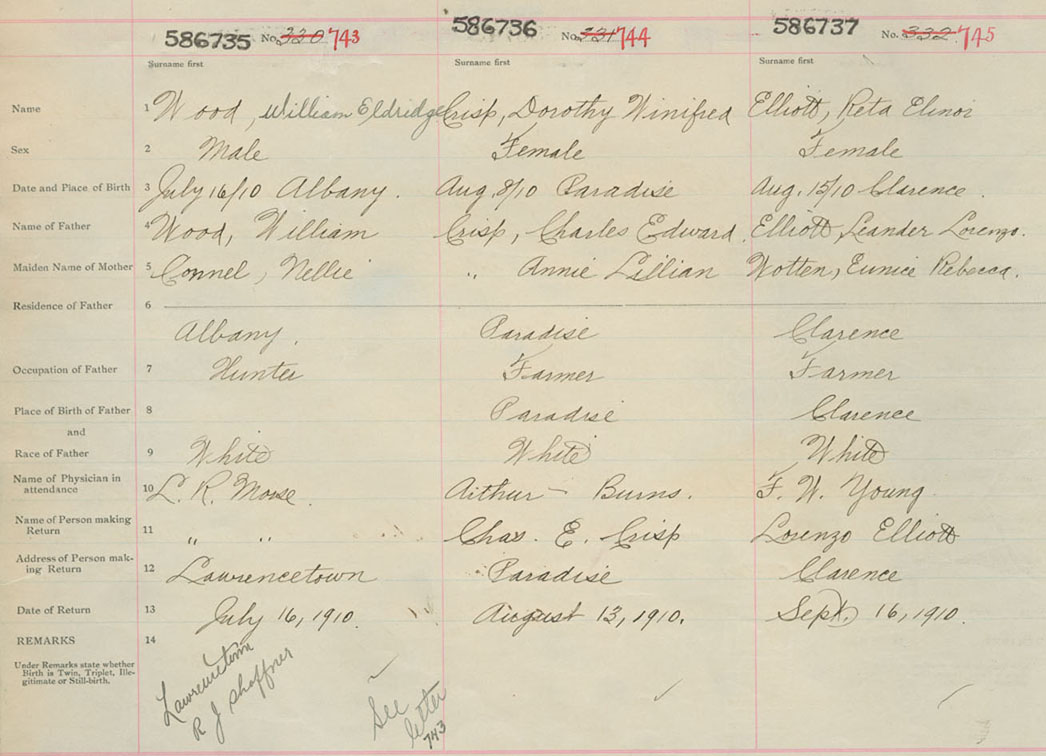 586735 No. 330 743 586736 No. 331 744 586737 No. 332 745
Surname first Surname first Surname first
Name 1 Wood, William Eldridge Crisp, Dorothy Winifred Elliott, Reta Elinor
Sex 2 Male Female Female
Date and Place of Birth 3 July 16/10 Albany. Aug. 8/10 Paradise Aug. 15/10 Clarence.
Name of Father 4 Wood, William Crisp, Charles Edward. Elliott, Leander Lorenzo.
Maiden Name of Mother 5 Connel, Nellie " Annie Lillian Wotten, Eunice Rebecca.
Residence of Father 6
Albany. Paradise Clarence
Occupation of Father 7 Hunter Farmer Farmer
Place of Birth of Father 8 Paradise Clarence
and
Race of Father 9 White White White
Name of Physician in
attendance 10 L. R. Morse. Arthur Burns. F. W. Young
Name of Person making
Return 11 " " Chas. E. Crisp Lorenzo Elliott
Address of Person mak-
ing Return 12 Lawrencetown Paradise Clarence
Date of Return 13 July 16, 1910. August 13, 1910. Sept. 16, 1910.
REMARKS 14
Under Remarks state whether
Birth is Twin, Triplet, Ille-
gitimate or Still-birth.
Lawrencetown
R J Shaffner
See
letter
743